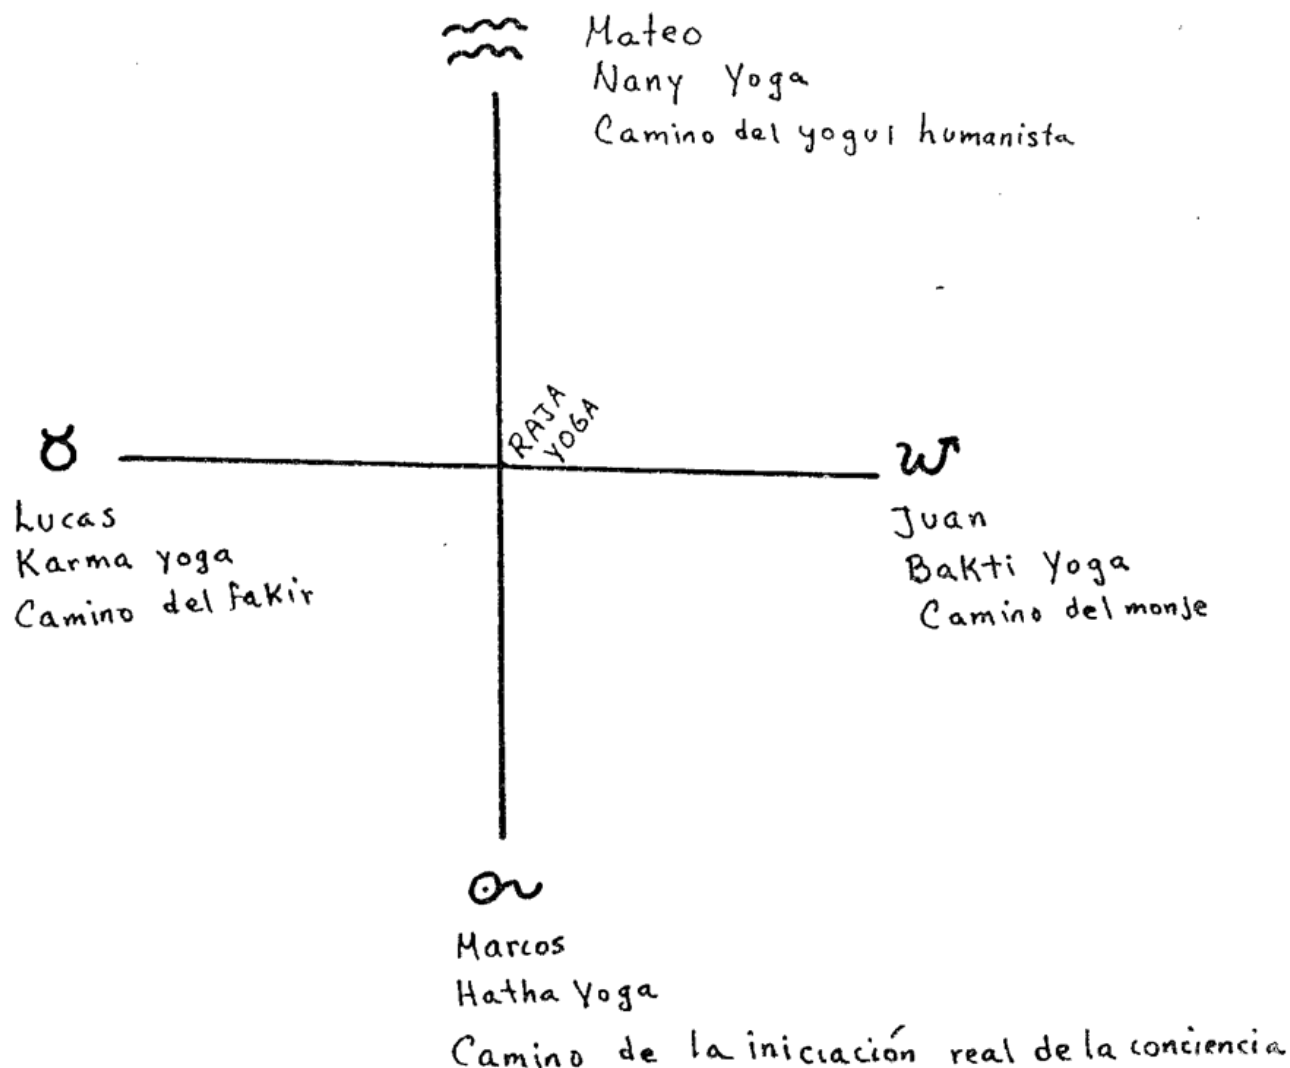 Mateo
Nany Yoga
Camino del yogui humanista
RAJA
YOGA
Lucas
Karma yoga
Camino del fakir
Juan
Bakti Yoga
Camino del monje
Marcos
Hatha Yoga
Camino de la iniciación real de la conciencia